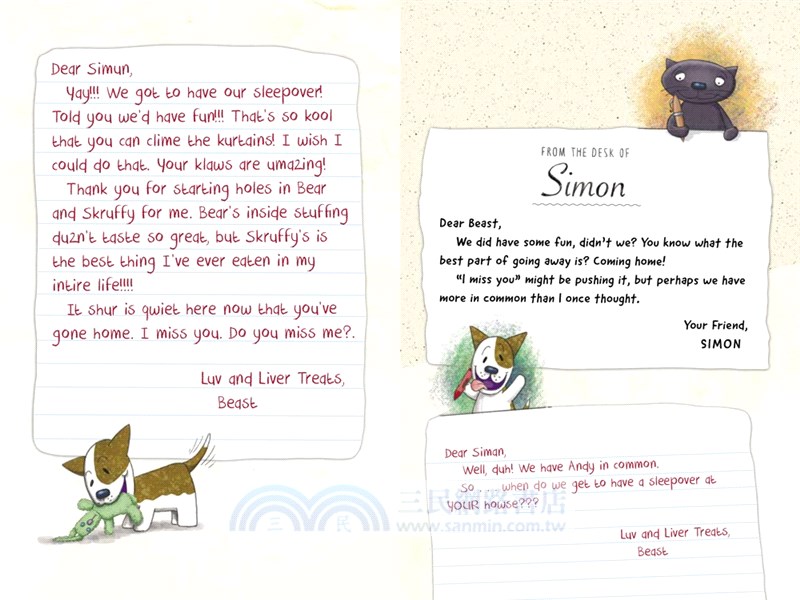 Dear Simun,
Yay!!! We got to have our sleepover!
Told you we'd have fun!!! That's so kool
that you can clime the kurtains! I wish I
could do that. Your klaws are umazing!
Thank you for starting holes in Bear
and Skruffy for me. Bear's inside stuffing
duzn't taste so great, but Skruffy's is
the best thing I've ever eaten in my
intire life!!!!
It shur is qwiet here now that you've
gone home. I miss you. Do you miss me?.
Luv and Liver Treats,
Beast
FROM THE DESK OF
Simon
Dear Beast,
We did have some fun, didn't we? You know what the
best part of going away is? Coming home!
“I miss you” might be pushing it, but perhaps we have
more in common than I once thought.
Your Friend,
SIMON
Dear Siman,
Well, duh! We have Andy in common.
So . . . when do we get to have a sleepover at
YOUR howse???
Luv and Liver Treats,
Beast
三民網路書店
三 民
www.sanmin.com.tw